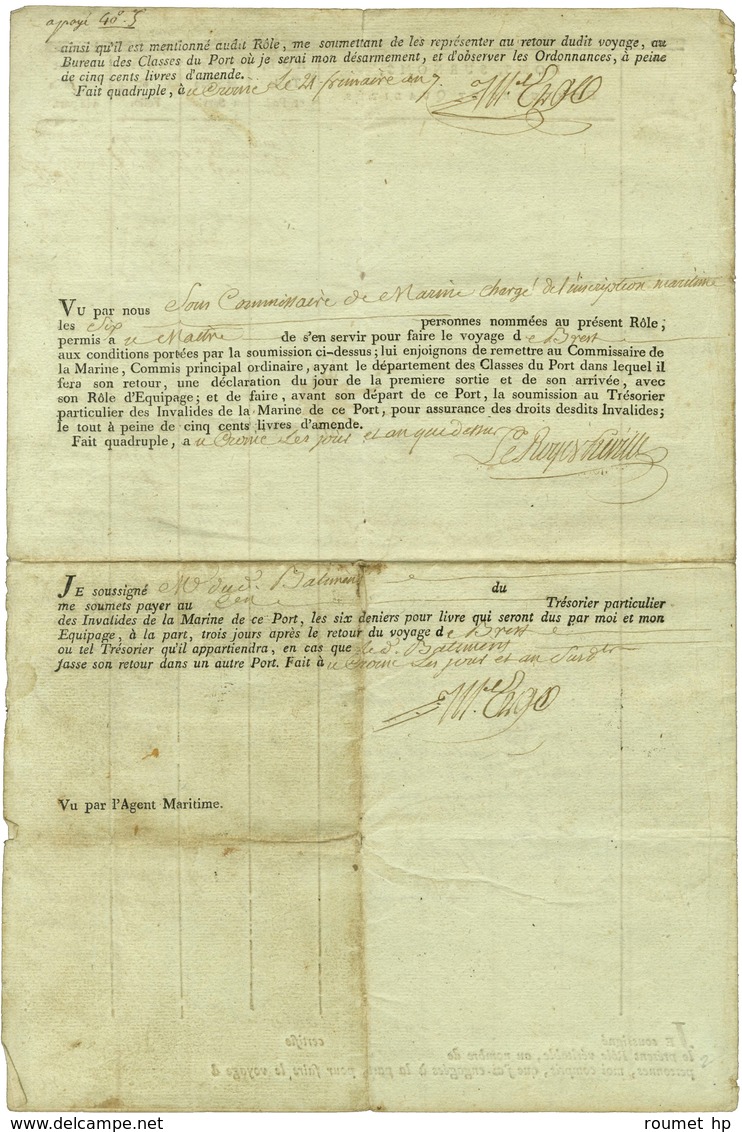 a payé 40.s
ainsi qu'il est mentionné audit Rôle, me soumettant de les représenter au retour dudit voyage, au
Bureau des Classes du Port où je serai mon désarmement, et d'observer les Ordonnances, à peine
de cinq cents livres d'amende.
Fait quadruple, à u Croisic Le 21 frimaire an 7.
VU par nous Sous Commissaire de Marine chargé de l'inscription maritime
les Six personnes nommées au présent Rôle;
permis a u Maitre de s'en servir pour faire le voyage d e Brest
aux conditions portées par la soumission ci-dessus; lui enjoignons de remettre au Commissaire de
la Marine, Commis principal ordinaire, ayant le département des Classes du Port dans lequel il
fera son retour, une déclaration du jour de la premiere sortie et de son arrivée, avec
son Rôle d'Equipage; et de faire, avant son départ de ce Port, la soumission au Trésorier
particulier des Invalides de la Marine de ce Port, pour assurance des droits desdits Invalides;
le tout à peine de cinq cents livres d'amende.
Fait quadruple, a u Croisic Les jour et an que dessus
JE soussigné M.e dud. Batiment du
me soumets payer au Trésorier particulier
des Invalides de la Marine de ce Port, les six deniers pour livre qui seront dus par moi et mon
Equipage, à la part, trois jours après le retour du voyage d e Brest
ou tel Trésorier qu'il appartiendra, en cas que le d. Batiment
fasse son retour dans un autre Port. Fait à u Croisic Les jour et an Susd.
Vu par l'Agent Maritime.
JE soussigné certifie
le présent Rôle véritable, au nombre de
personnes, moi compris, que j'ai engagées à la part, pour faire le voyage d
roumet hp